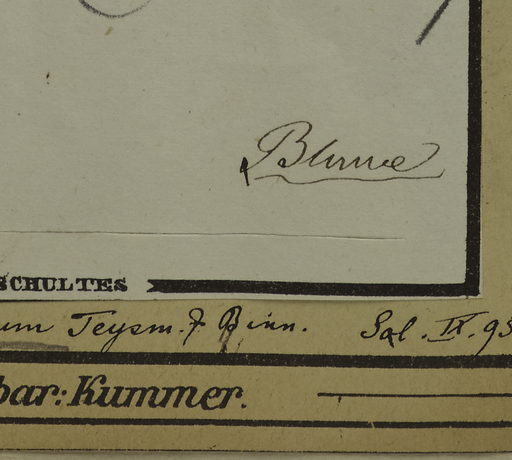 Blume
SCHULTES
um Teysm. & Binn. Sol. IX. 95
bar: Kummer.